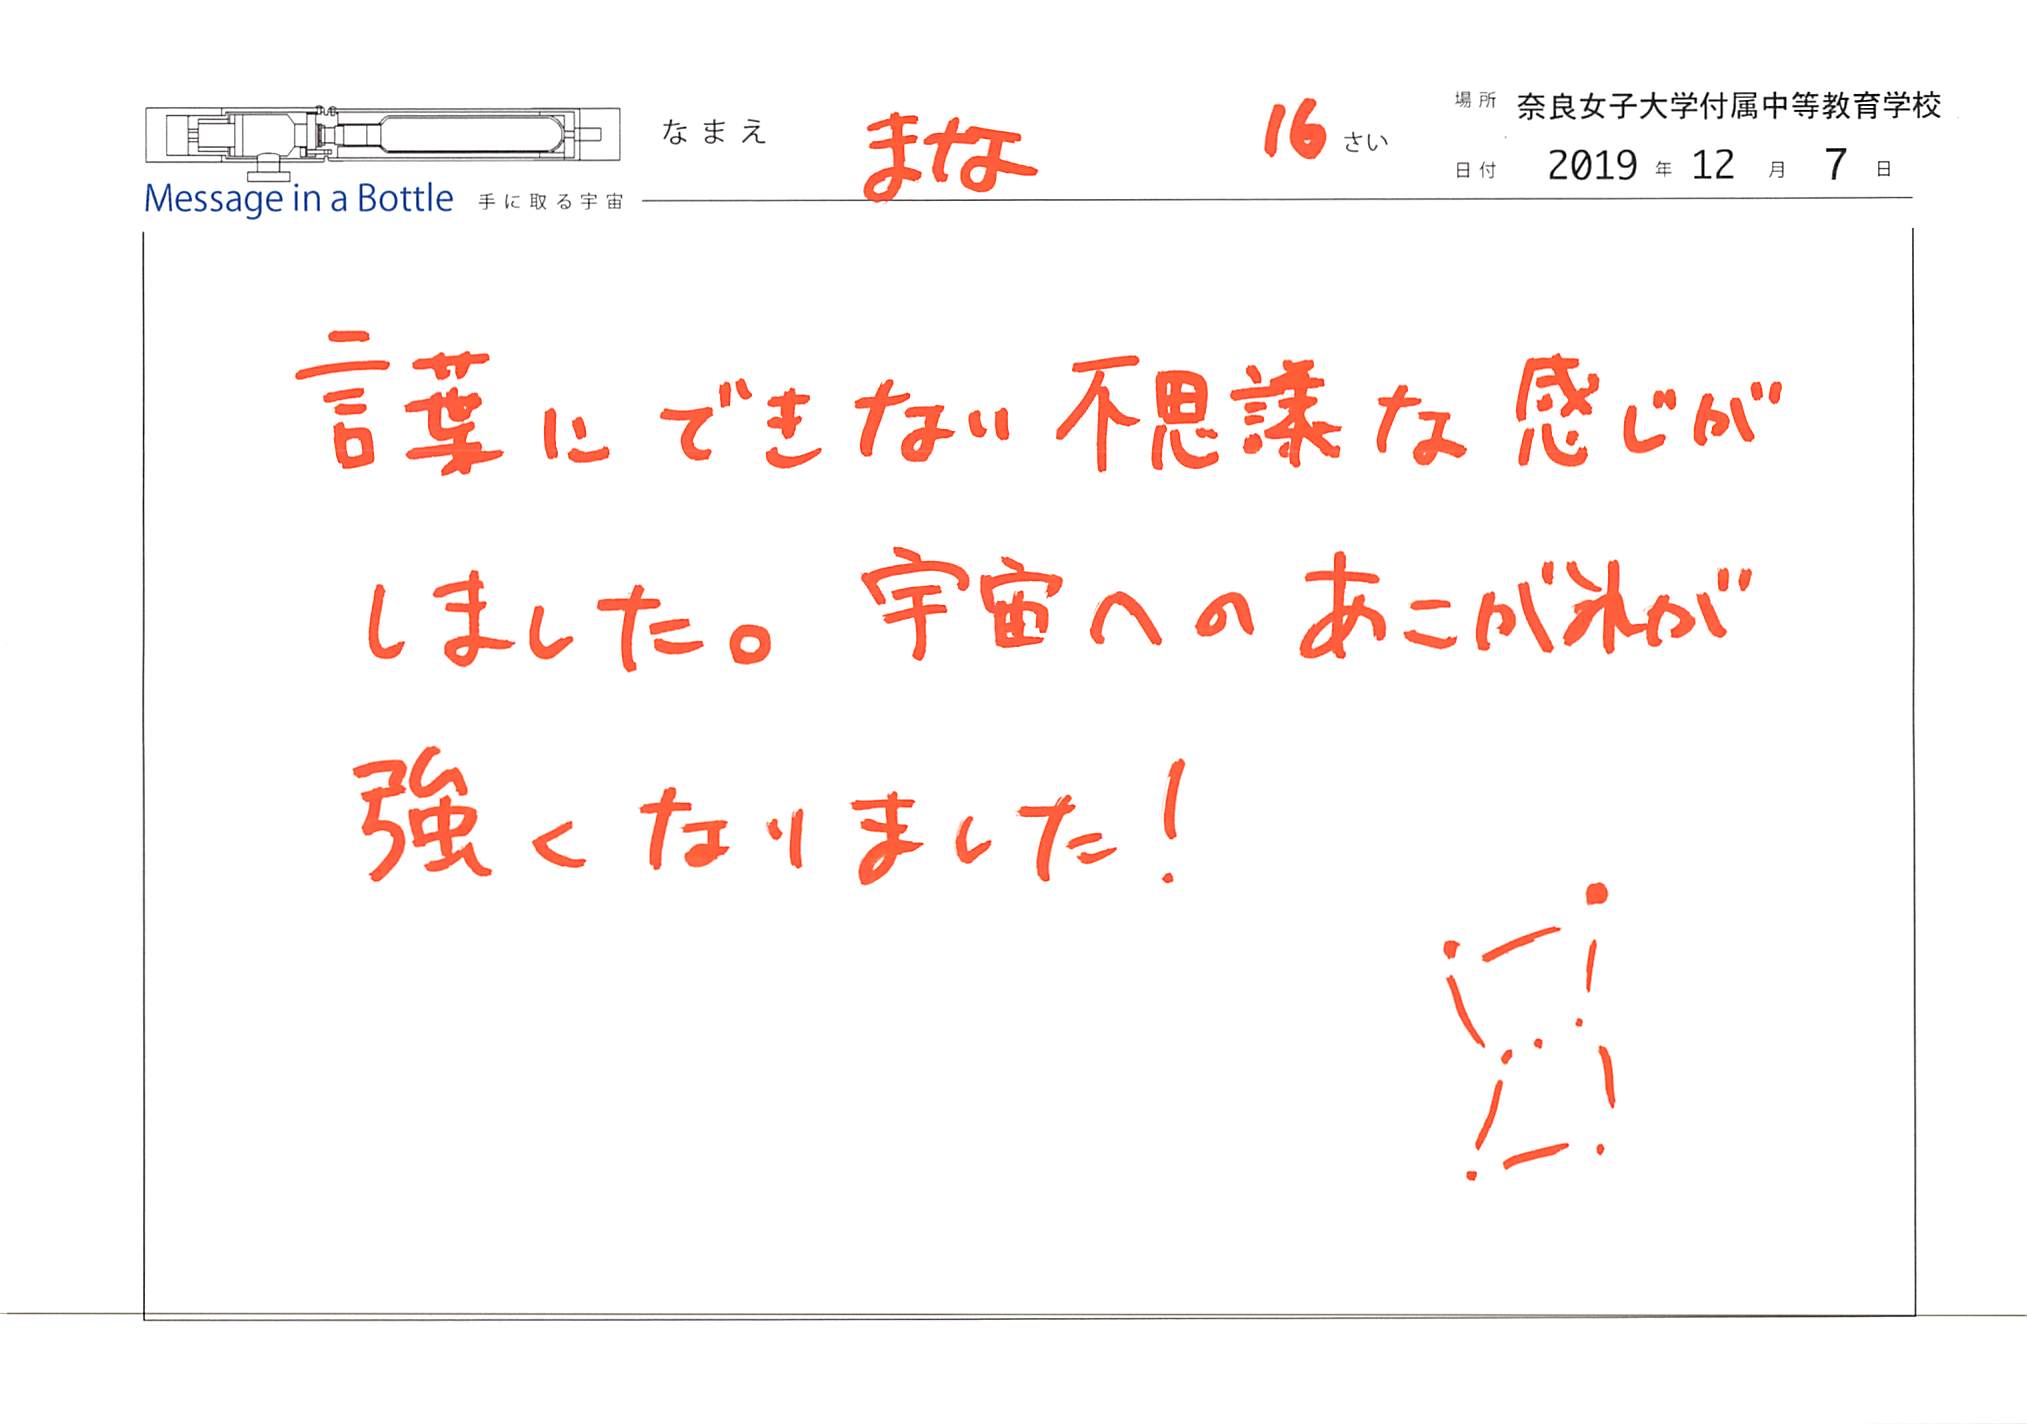 なまえ まな 16 さい
場所 奈良女子大学付属中等教育学校
日付 2019 年 12 月 7 日
Message in a Bottle 手に取る宇宙
言葉にできない不思議な感じが
しました。宇宙へのあこがれが
強くなりました！